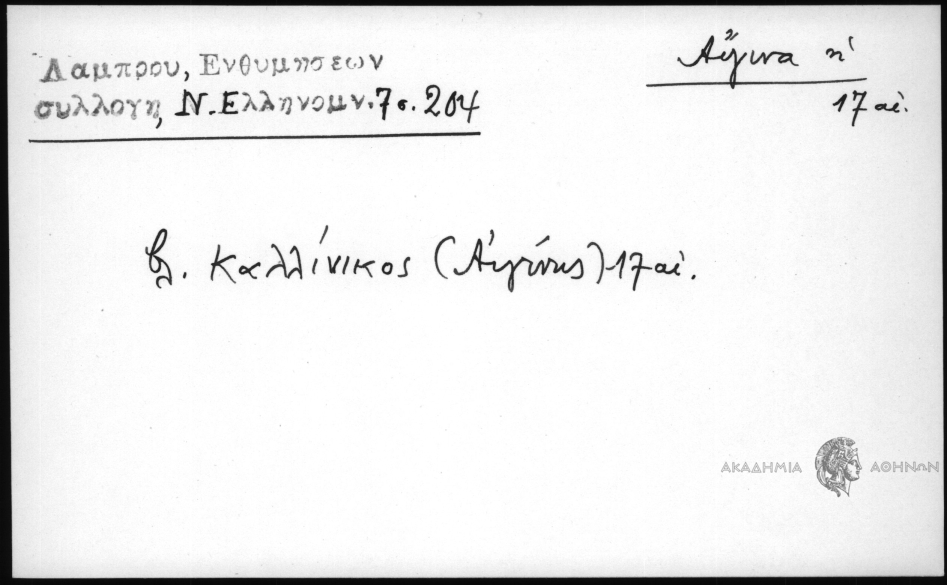 Λαμπρου, Ενθυμησεων
συλλογη, Ν. Ελληνομν. 7 σ. 204
Αἴγινα η'
17 αἰ.
βλ. Καλλίνικος (Αἰγίνης) 17 αἰ.
ΑΚΑΔΗΜΙΑ ΑΘΗΝΩΝ